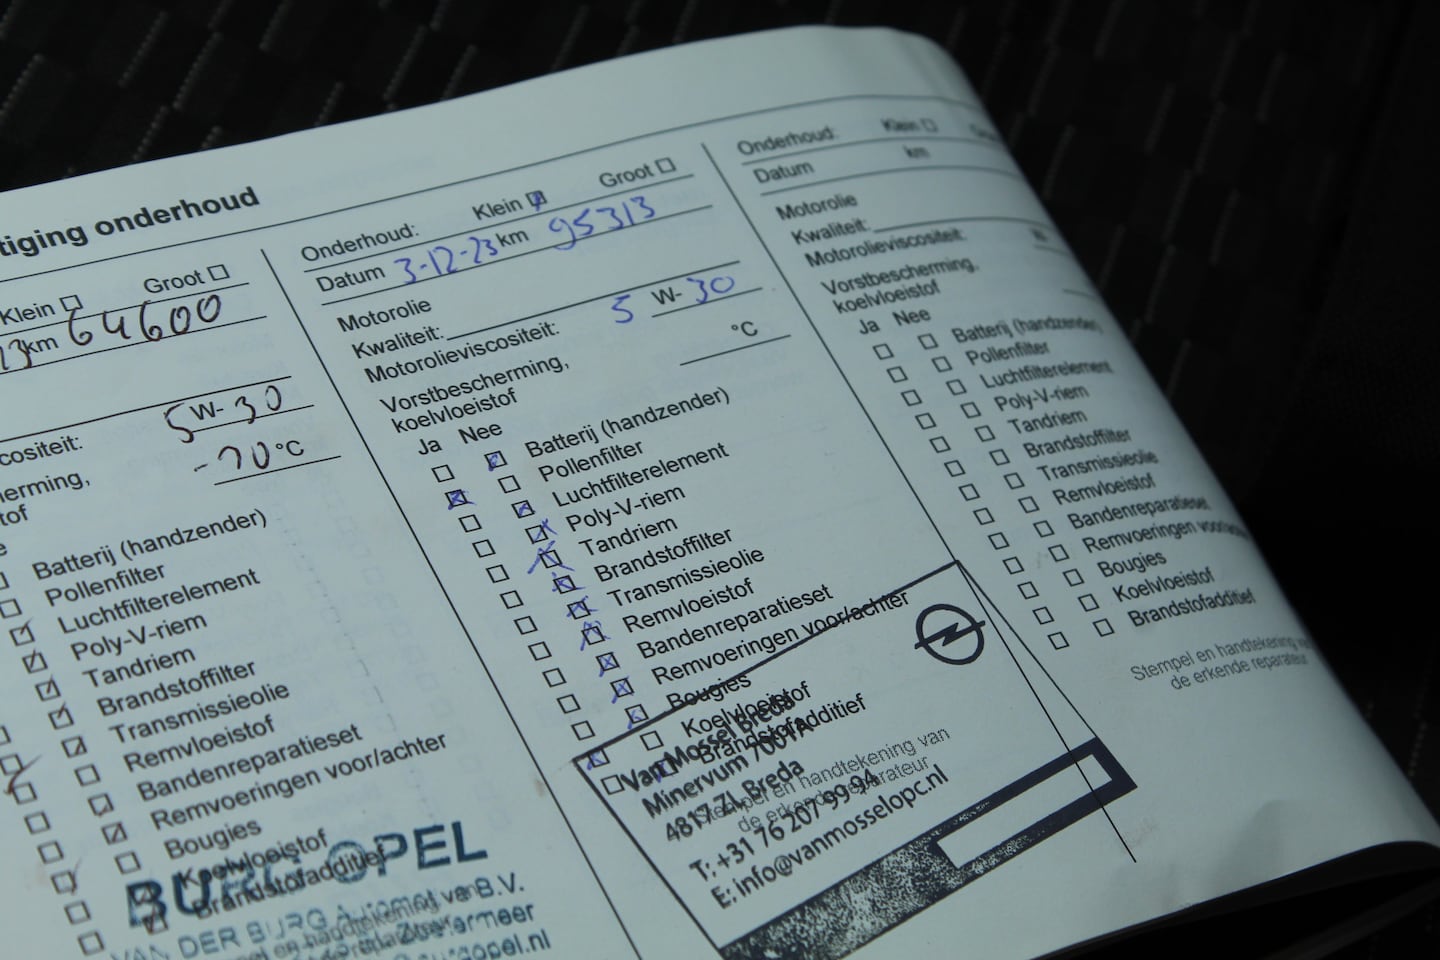 tiging onderhoud
Klein Groot
km 64600
cositeit: 5 W- 30
herming,
tof
°C
Batterij (handzender)
Pollenfilter
Luchtfilterelement
Poly-V-riem
Tandriem
Brandstoffilter
Transmissieolie
Remvloeistof
Bandenreparatieset
Remvoeringen voor/achter
Bougies
Koelvloeistof
Brandstofadditief
BURG OPEL
VAN DER BURG Automotive B.V.
Zoetermeer
burgopel.nl
Onderhoud: Klein Groot
Datum 3-12-23 km 95313
Motorolie
Kwaliteit:
Motorolieviscositeit: 5 W- 30
Vorstbescherming,
koelvloeistof °C
Ja Nee
Batterij (handzender)
Pollenfilter
Luchtfilterelement
Poly-V-riem
Tandriem
Brandstoffilter
Transmissieolie
Remvloeistof
Bandenreparatieset
Remvoeringen voor/achter
Bougies
Koelvloeistof
Brandstofadditief
Stempel en handtekening van
de erkende reparateur
Van Mossel Breda
Minervum 7001A
4817 ZL Breda
T: +31 76 207 99 94
E: info@vanmosselopc.nl
Onderhoud: Klein
Datum km
Motorolie
Kwaliteit:
Motorolieviscositeit:
Vorstbescherming,
koelvloeistof
Ja Nee
Batterij (handzender)
Pollenfilter
Luchtfilterelement
Poly-V-riem
Tandriem
Brandstoffilter
Transmissieolie
Remvloeistof
Bandenreparatieset
Remvoeringen voor/achter
Bougies
Koelvloeistof
Brandstofadditief
Stempel en handtekening
de erkende reparateur